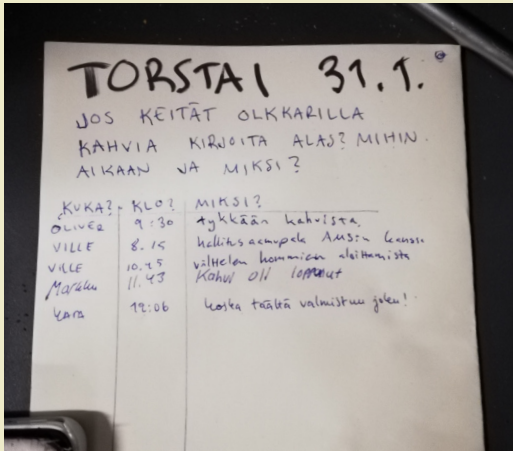 TORSTAI 31.1.
JOS KEITÄT OLKKARILLA
KAHVIA KIRJOITA ALAS? MIHIN
AIKAAN JA MIKSI?
KUKA? KLO? MIKSI?
OLIVER 9:30 tykkään kahvista
VILLE 8.15 hallitusaamupala AMS:n kanssa
VILLE 10.45 välttelen hommien aloittamista
Markku 11.43 Kahvi oli loppunut
12:06 koska täältä valmistuu joku!